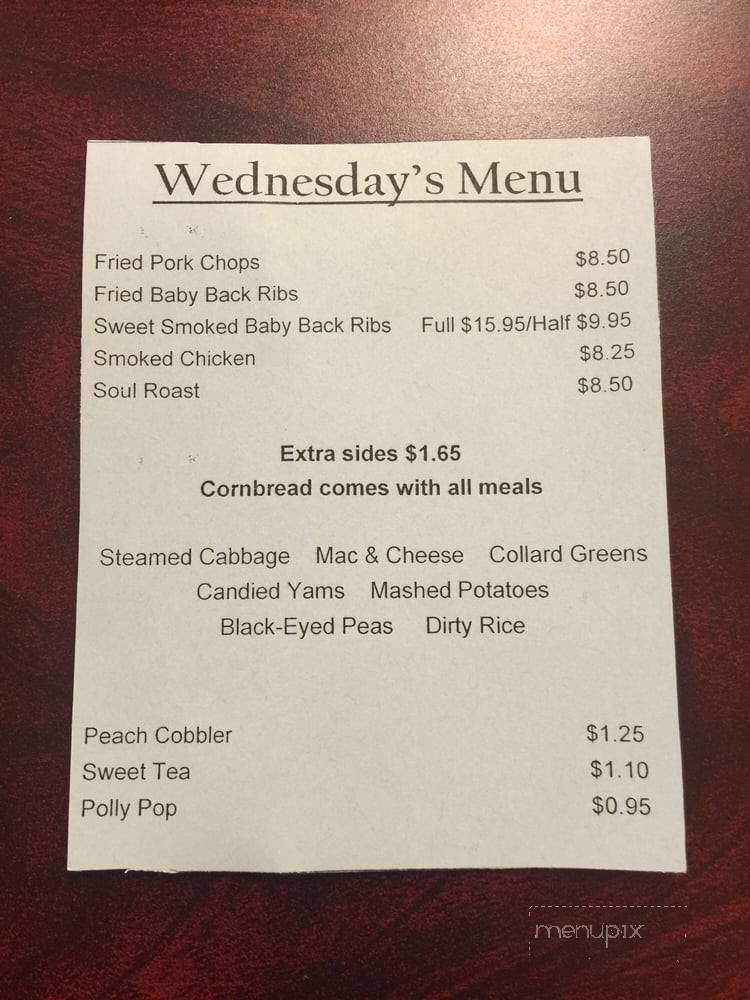 Wednesday's Menu
Fried Pork Chops $8.50
Fried Baby Back Ribs $8.50
Sweet Smoked Baby Back Ribs Full $15.95/Half $9.95
Smoked Chicken $8.25
Soul Roast $8.50
Extra sides $1.65
Cornbread comes with all meals
Steamed Cabbage Mac & Cheese Collard Greens
Candied Yams Mashed Potatoes
Black-Eyed Peas Dirty Rice
Peach Cobbler $1.25
Sweet Tea $1.10
Polly Pop $0.95
menupix